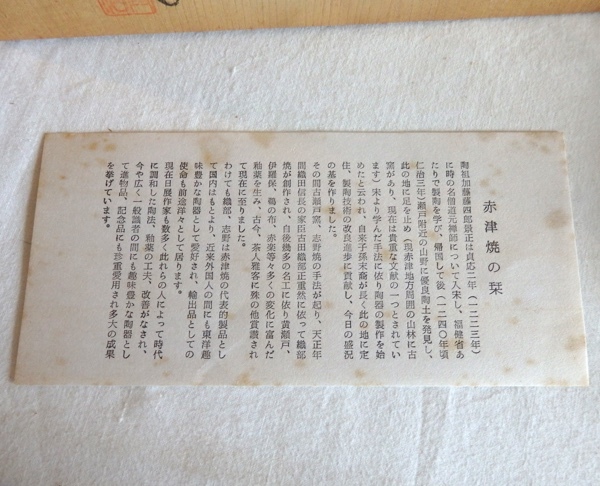 赤津焼の栞
陶祖加藤藤四郎景正は貞応二年（一二二三年）
に時の名僧道元禅師について入宋し、福健省あ
たりで製陶を学び、帰国して後（一二四〇年頃
仁治三年）瀬戸附近の山野に優良陶土を発見し、
此の地に足を止め（現赤津地方周囲の山林に古
窯があり、現在は貴重な文献の一つとされてい
ます）宋より学んだ手法に依り陶器の製作を始
めたと云われ、自来子孫末裔が長く此の地に定
住、製陶技術の改良進歩に貢献し、今日の盛況
の基を作りました。
その間古瀬戸窯、志野焼の手法が起り、天正年
間織田信長の家臣古田織部正重然に依って織部
焼が創作され、自後幾多の名工に依り黄瀬戸、
伊羅保、鵜の布、赤楽等々多くの変化に富んだ
釉薬を生み、古今、茶人雅客に殊の他賞讃され
て現在に至りました。
わけても織部、志野は赤津焼の代表的製品とし
て国内はもとより、近来外国人の間にも東洋趣
味豊かな陶器として愛好され、輸出品としての
使命も前途洋々として居ります。
現在日展作家も数多く此れらの人によって時代
に調和した陶法、釉薬の工夫、改善がなされ、
今や広く一般識者の間にも趣味豊かな陶器とし
て進物品、記念品にも珍重愛用され多大の成果
を挙げています。